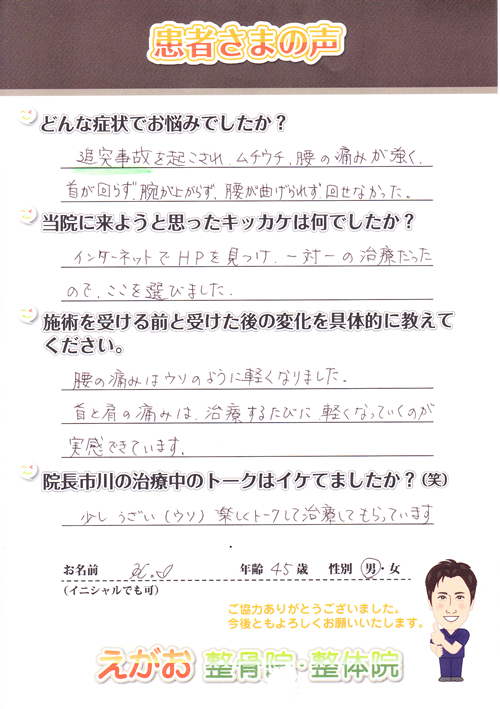 患者さまの声
どんな症状でお悩みでしたか？
追突事故を起こされ、ムチウチ、腰の痛みが強く、
首が回らず、腕が上がらず、腰が曲げられず、回せなかった。
当院に来ようと思ったキッカケは何でしたか？
インターネットでHPを見つけ、一対一の治療だった
ので、ここを選びました。
施術を受ける前と受けた後の変化を具体的に教えて
ください。
腰の痛みはウソのように軽くなりました。
首と肩の痛みは、治療するたびに、軽くなっていくのが
実感できています。
院長市川の治療中のトークはイケてましたか？(笑)
少しうざい(ウソ)楽しくトークして治療してもらっています
お名前
年齢 45歳 性別 男・女
(イニシャルでも可)
ご協力ありがとうございました。
今後ともよろしくお願いいたします。
えがお 整骨院・整体院